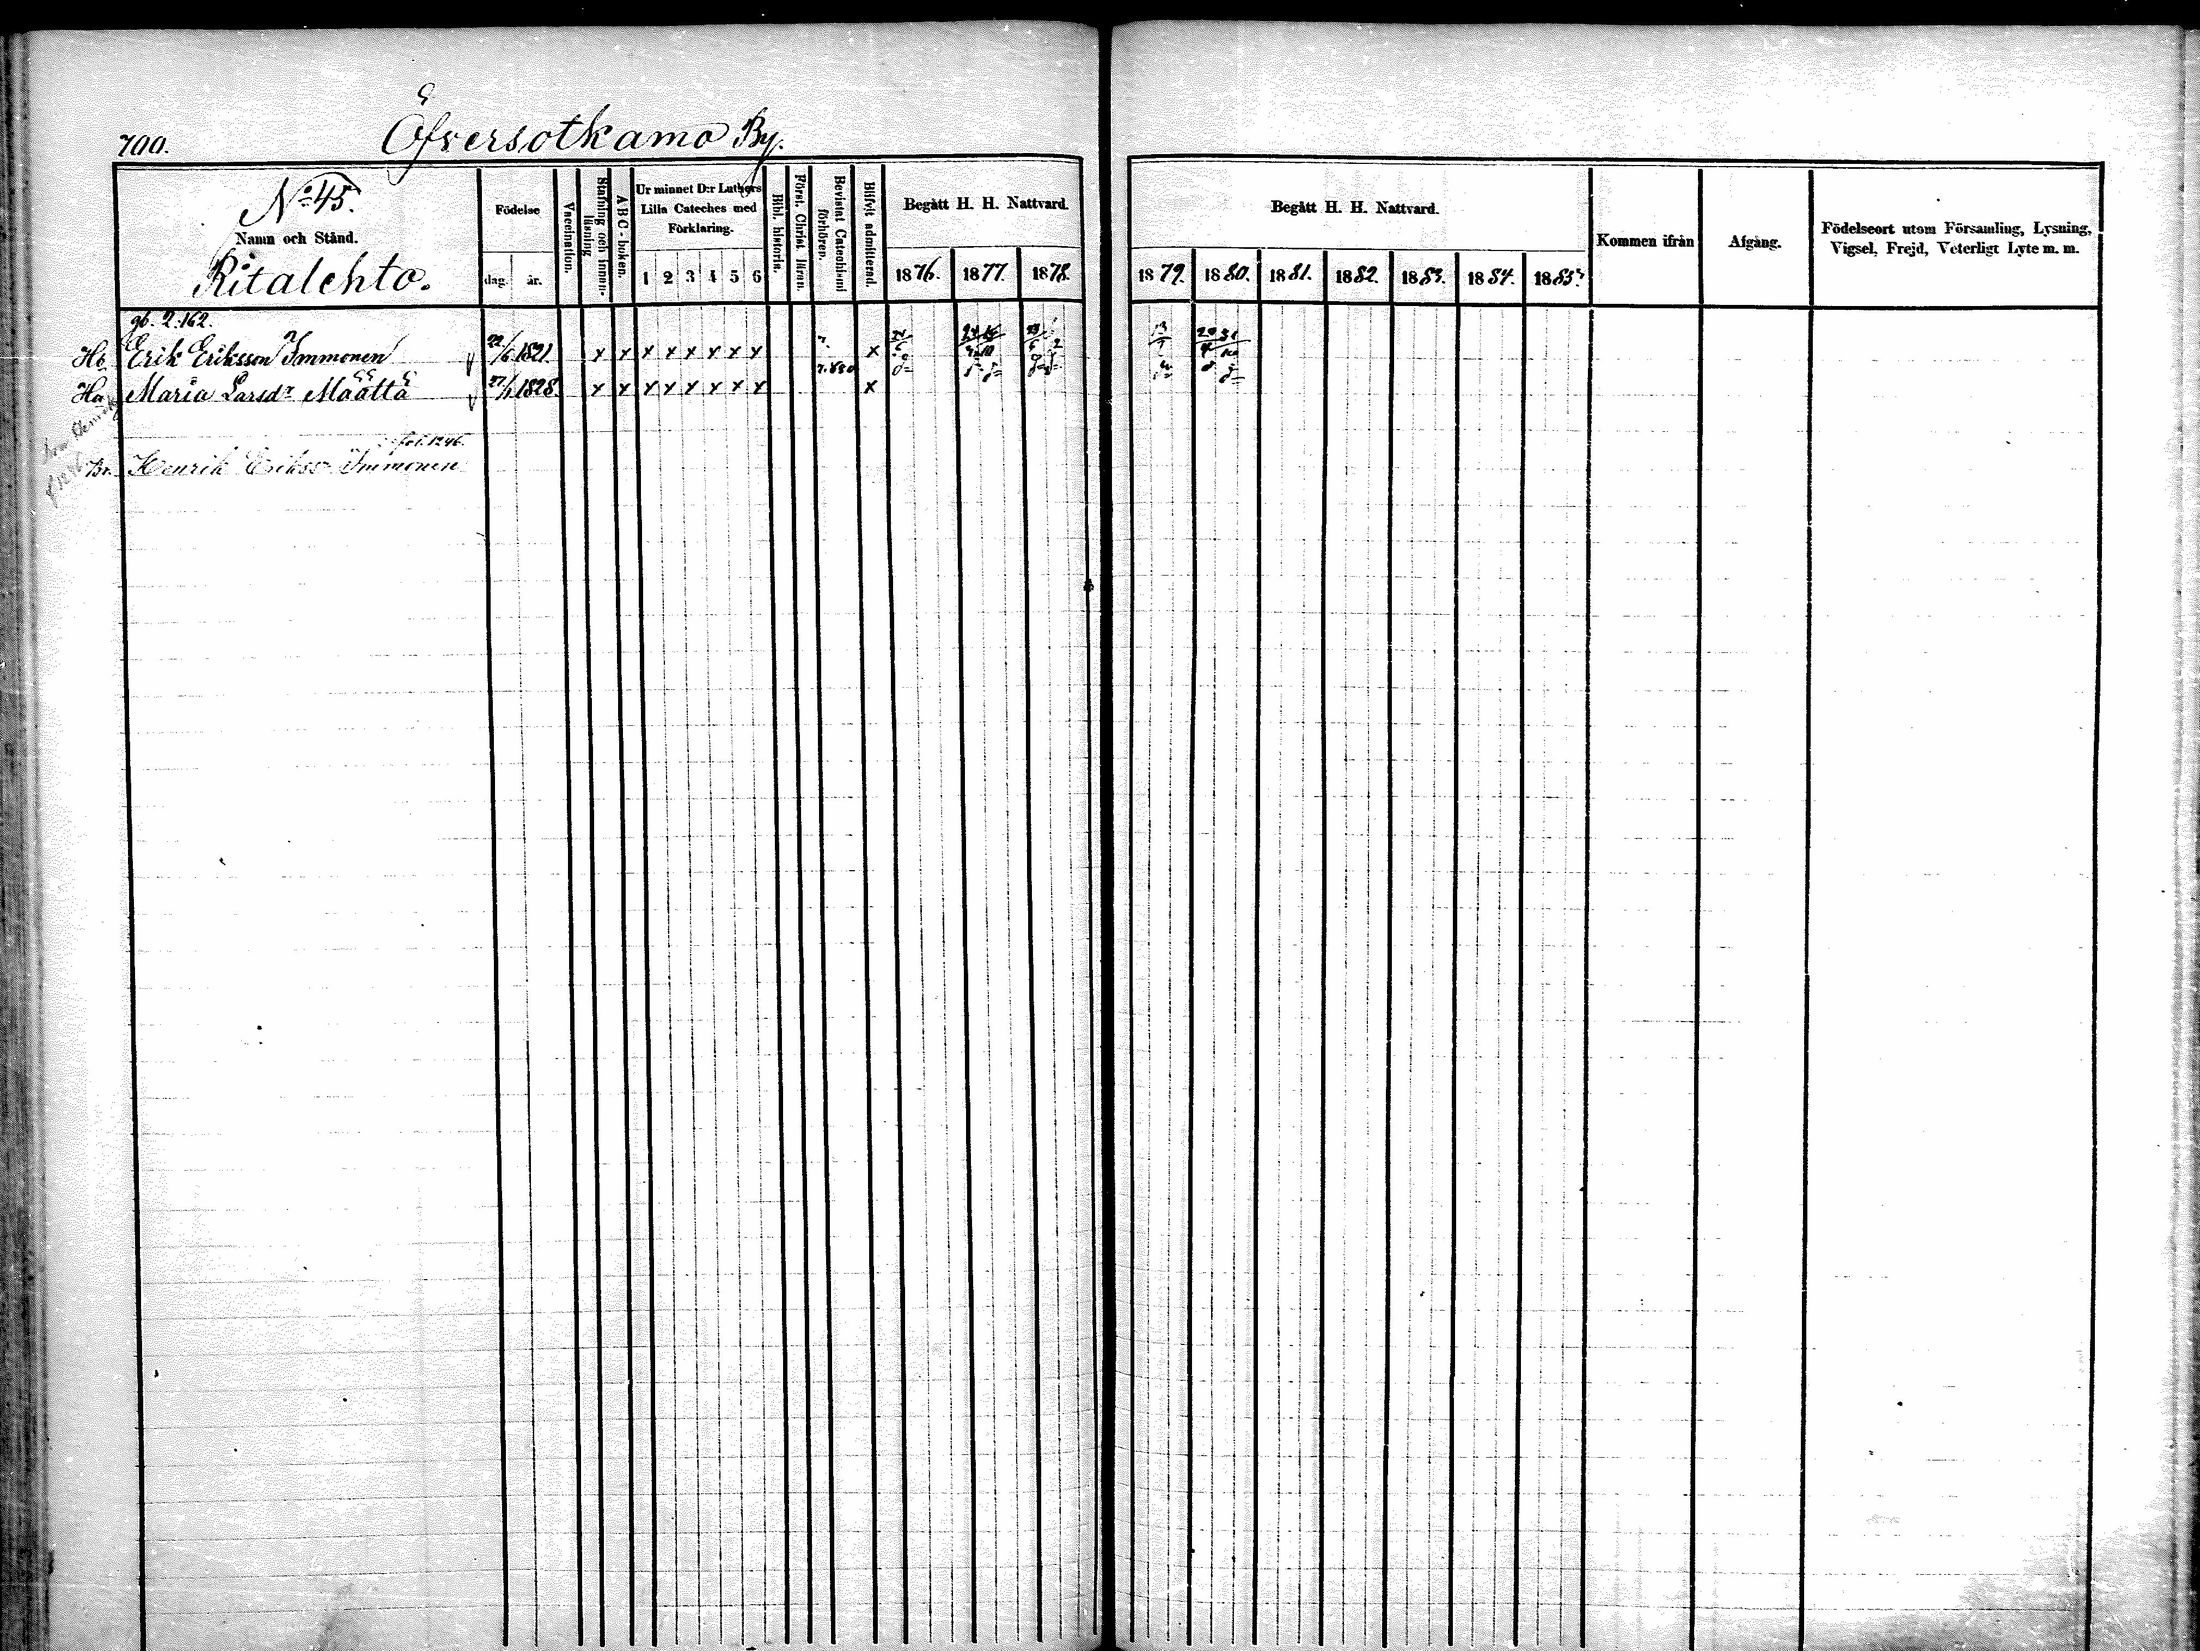 700.
Öfversotkamo By.
No 45.
Namn och Stånd.
Ritalehto.
Födelse
dag. år.
Vaccination.
Stafning och innan-läsning
A B C-boken.
Ur minnet D:r Luthers Lilla Cateches med Förklaring.
1 2 3 4 5 6
Bibl. historia.
Först. Christ. läran.
Bevistat Catechismi förhören.
Blifvit admitterad.
Begått H. H. Nattvard.
1876. 1877. 1878.
Begått H. H. Nattvard.
1879. 1880. 1881. 1882. 1883. 1884. 1885.
Kommen ifrån
Afgång.
Födelseort utom Församling, Lysning, Vigsel, Frejd, Veterligt Lyte m. m.
gb. 2:162.
Erik Eriksson Immonen v 22/6 1821. x x x x x x x x x
Maria Larsdr Määttä v 27/1 1828. x x x x x x x x 7.880 x
fol. 1246.
Br. Henrik Erikss. Immonen